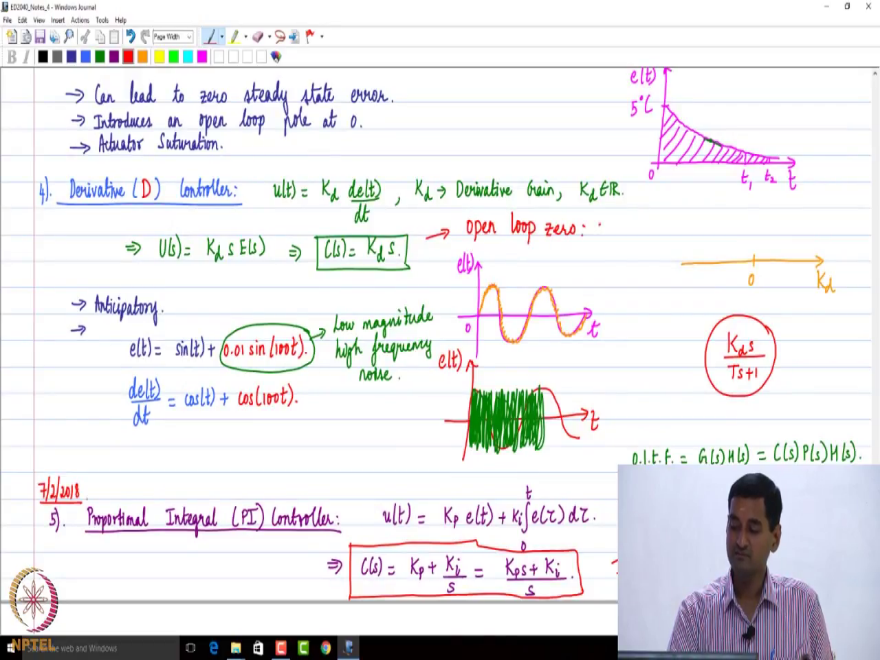 ED2040_Notes_4 - Windows Journal
File Edit View Insert Actions Tools Help
Page Width
B I
→ Can lead to zero steady state error.
→ Introduces an open loop pole at 0.
→ Actuator Saturation.
e(t)
5°C
0 t₁ t₂ t
4). Derivative (D) Controller: u(t) = K_d de(t)/dt, K_d → Derivative Gain, K_d ∈ ℝ.
⇒ U(s) = K_d s E(s) ⇒ C(s) = K_d s. → open loop zero:
e(t)
0 t
0 K_d
→ Anticipatory.
→
e(t) = sin(t) + 0.01 sin(100t). → Low magnitude high frequency noise.
K_d s / Ts+1
de(t)/dt = cos(t) + cos(100t).
e(t)
t
O.L.T.F. = G(s)H(s) = C(s)P(s)H(s).
7/2/2018
5). Proportional Integral (PI) Controller: u(t) = K_p e(t) + K_i ∫₀ᵗ e(τ) dτ.
⇒ C(s) = K_p + K_i/s = K_p s + K_i / s.
NPTEL
the web and Windows